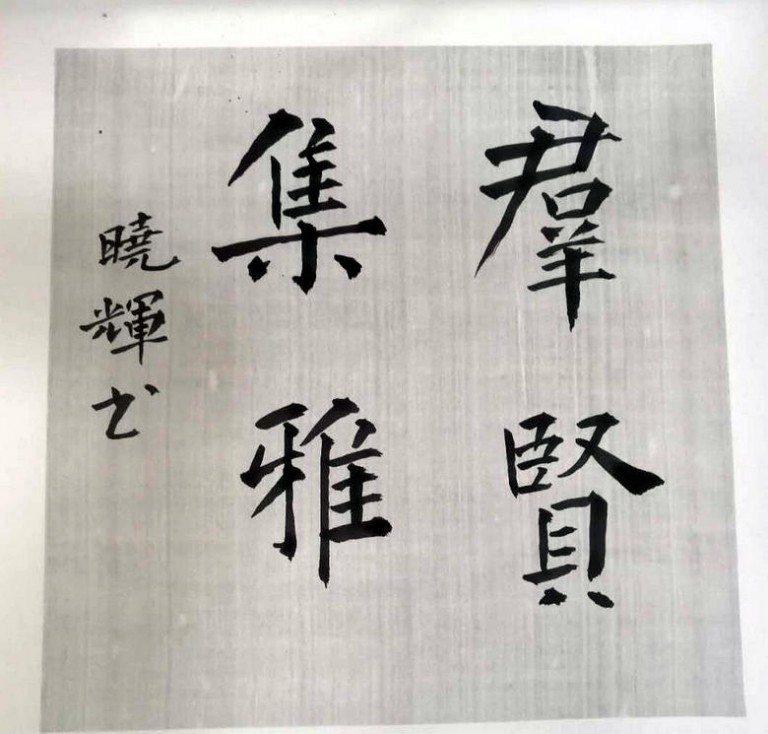 羣賢
集雅
曉輝书